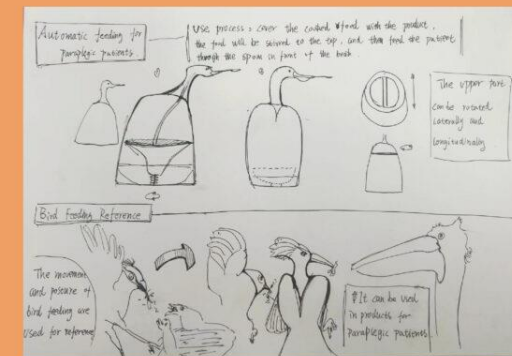 Automatic feeding for
paraplegic patients.
Use process: cover the cooked food with the product,
the food will be stirred to the top, and then feed the patient
through the spoon in front of the beak.
The upper part
can be rotated
laterally and
longitudinally
Bird Feeding Reference
The movement
and posture of
bird feeding are
used for reference
It can be used
in products for
paraplegic patients.